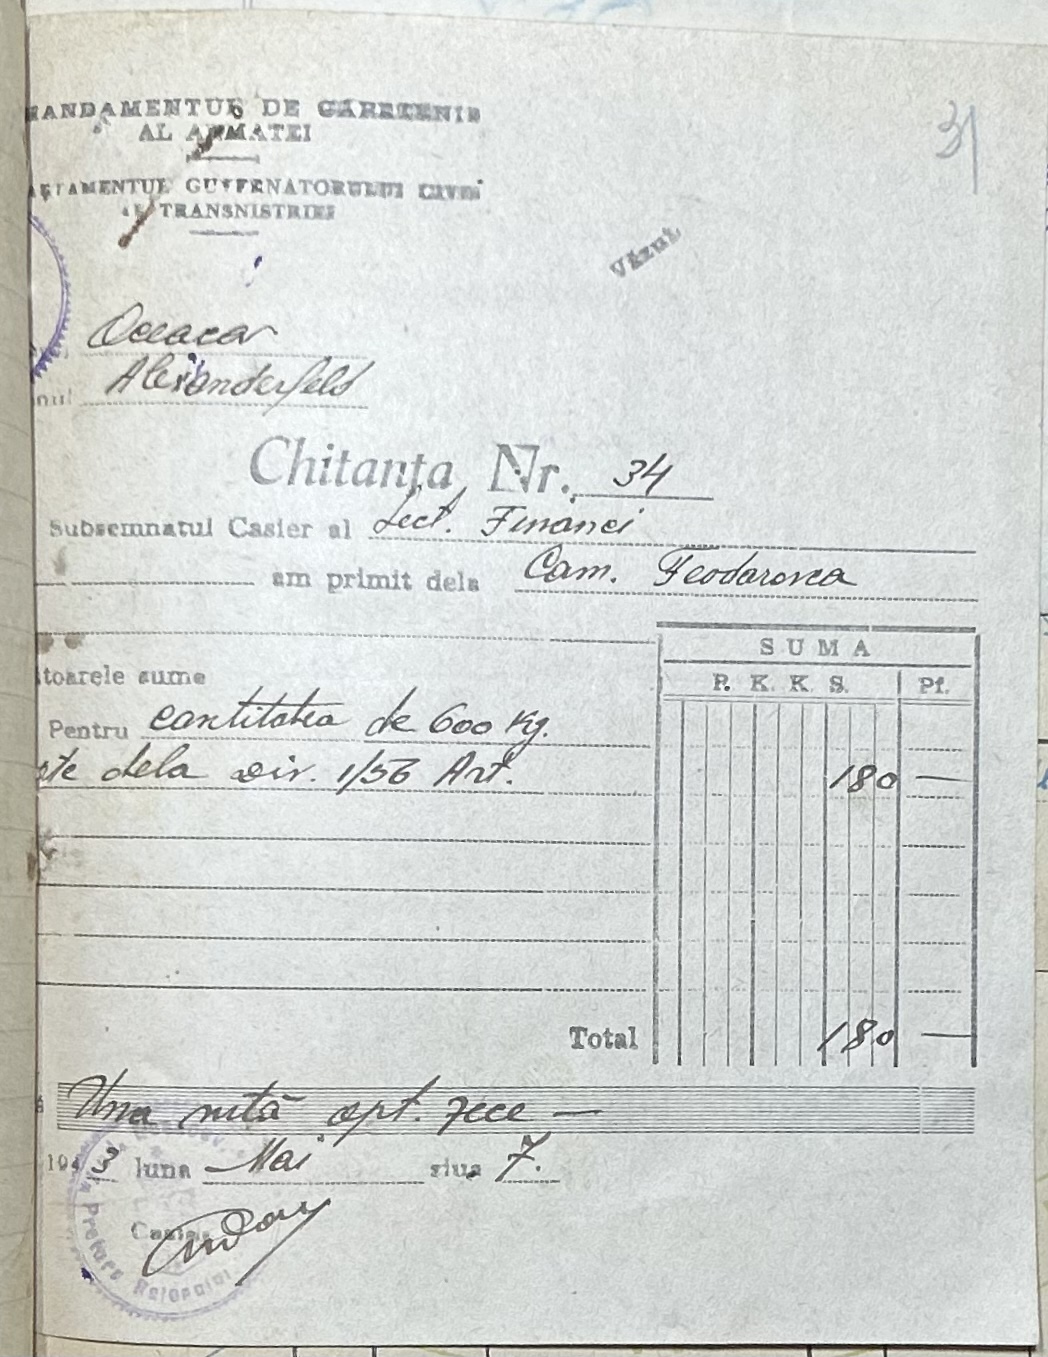 31
MANDAMENTUL DE CĂPETENIE
AL ARMATEI
RTAMENTUL GUVERNATORULUI CIVIL
AL TRANSNISTRIEI
Văzut
Oceacov
nul Alexanderfeld
Chitanța Nr. 34
Subsemnatul Casier al Sect. Financi
am primit dela Com. Feodorovca
SUMA
toarele sume
R. K. K. S. Pf.
Pentru cantitatea de 600 Kg.
dela Div. 1/56 Art. 180 —
Total 180 —
Una sută opt. zece —
194 3 luna Mai ziua 7.
Casier
Pretura Raionului